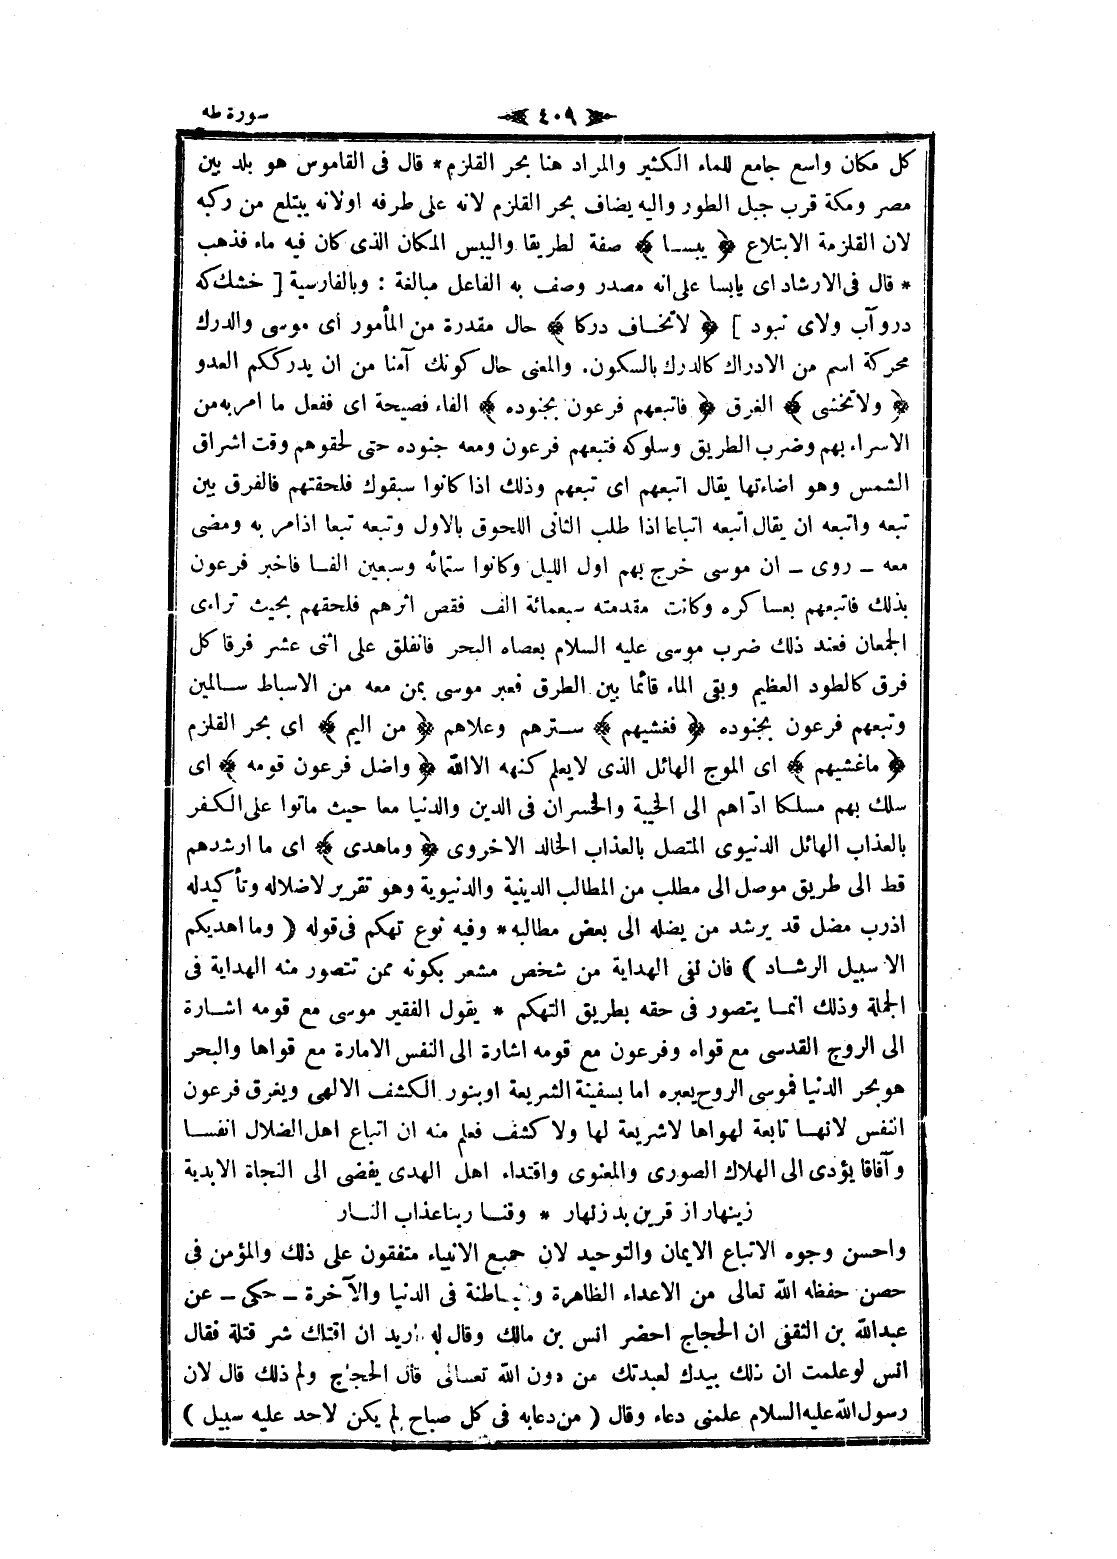 سورة طه
٤٠٩
كل مكان واسع جامع للماء الكثير والمراد هنا بحر القلزم * قال فى القاموس هو بلد بين
مصر ومكة قرب جبل الطور واليه يضاف بحر القلزم لانه على طرفه اولانه يبتلع من ركبه
لان القلزمة الابتلاع ﴿ يبسا ﴾ صفة لطريقا واليبس المكان الذى كان فيه ماء فذهب
* قال فى الارشاد اى يابسا على انه مصدر وصف به الفاعل مبالغة : وبالفارسية [ خشك كه
درو آب ولاى نبود ] ﴿ لاتخاف دركا ﴾ حال مقدرة من المأمور اى موسى والدرك
محركة اسم من الادراك كالدرك بالسكون. والمعنى حال كونك آمنا من ان يدرككم العدو
﴿ ولاتخشى ﴾ الغرق ﴿ فاتبعهم فرعون بجنوده ﴾ الفاء فصيحة اى ففعل ما امر به من
الاسراء بهم وضرب الطريق وسلوكه فتبعهم فرعون ومعه جنوده حتى لحقوهم وقت اشراق
الشمس وهو اضاءتها يقال اتبعهم اى تبعهم وذلك اذا كانوا سبقوك فلحقتهم فالفرق بين
تبعه واتبعه ان يقال اتبعه اتباعا اذا طلب الثانى اللحوق بالاول وتبعه تبعا اذامر به ومضى
معه ـ روى ـ ان موسى خرج بهم اول الليل وكانوا ستمائه وسبعين الفا فاخبر فرعون
بذلك فاتبعهم بعساكره وكانت مقدمته سبعمائة الف فقص اثرهم فلحقهم بحيث تراءى
الجمعان فعند ذلك ضرب موسى عليه السلام بعصاه البحر فانفلق على اثنى عشر فرقا كل
فرق كالطود العظيم وبقى الماء قائما بين الطرق فعبر موسى بمن معه من الاسباط سالمين
وتبعهم فرعون بجنوده ﴿ فغشيهم ﴾ سترهم وعلاهم ﴿ من اليم ﴾ اى بحر القلزم
﴿ ماغشيهم ﴾ اى الموج الهائل الذى لايعلم كنهه الاالله ﴿ واضل فرعون قومه ﴾ اى
سلك بهم مسلكا ادّاهم الى الخيبة والخسران فى الدين والدنيا معا حيث ماتوا على الكفر
بالعذاب الهائل الدنيوى المتصل بالعذاب الخالد الاخروى ﴿ وماهدى ﴾ اى ما ارشدهم
قط الى طريق موصل الى مطلب من المطالب الدينية والدنيوية وهو تقرير لاضلاله وتأكيدله
اذرب مضل قد يرشد من يضله الى بعض مطالبه * وفيه نوع تهكم فى قوله ( وما اهديكم
الا سبيل الرشاد ) فان نفى الهداية من شخص مشعر بكونه ممن تتصور منه الهداية فى
الجملة وذلك انما يتصور فى حقه بطريق التهكم * يقول الفقير موسى مع قومه اشارة
الى الروح القدسى مع قواه وفرعون مع قومه اشارة الى النفس الامارة مع قواها والبحر
هو بحر الدنيا فموسى الروح يعبره اما بسفينة الشريعة او بنور الكشف الالهى ويغرق فرعون
النفس لانها تابعة لهواها لاشريعة لها ولا كشف فعلم منه ان اتباع اهل الضلال انفسا
وآفاقا يؤدى الى الهلاك الصورى والمعنوى واقتداء اهل الهدى يفضى الى النجاة الابدية
زينهار از قرين بد زنهار * وقنا ربنا عذاب النار
واحسن وجوه الاتباع الايمان والتوحيد لان جميع الانبياء متفقون على ذلك والمؤمن فى
حصن حفظه الله تعالى من الاعداء الظاهرة والباطنة فى الدنيا والآخرة ـ حكى ـ عن
عبدالله بن الثقفى ان الحجاج احضر انس بن مالك وقال له اريد ان اقتلك شر قتلة فقال
انس لوعلمت ان ذلك بيدك لعبدتك من دون الله تعالى قال الحجاج ولم ذلك قال لان
رسول الله عليه السلام علمنى دعاء وقال ( من دعابه فى كل صباح لم يكن لاحد عليه سبيل )